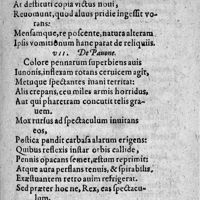 At destituti copia victus noui,
Reuomunt, quod aluus pridie ingessit vo-
rans:
Mensamque, re poscente, natura alteram
Ipsis vomitionum hanc parat de reliquiis.
VII. De Pauone.
Colore pennarum superbiens auis
Iunonis, inflexam rotans ceruicem agit,
Metuque spectantes inani territat:
Alis crepans, ceu miles armis horridus,
Aut qui pharetram concutit telis gra-
uem.
Mox rursus ad spectaculum inuitans
eos,
Postica pandit carbasa alarum erigens:
Quibus reflexis instar orbis callide,
Pennis opacans semet, æstum reprimit:
Atque aura perflans tenuis, & spirabilis,
Exæstuantem retro auium refrigerat.
Sed præter hoc ne, Rex, eas spectacu-
lum.